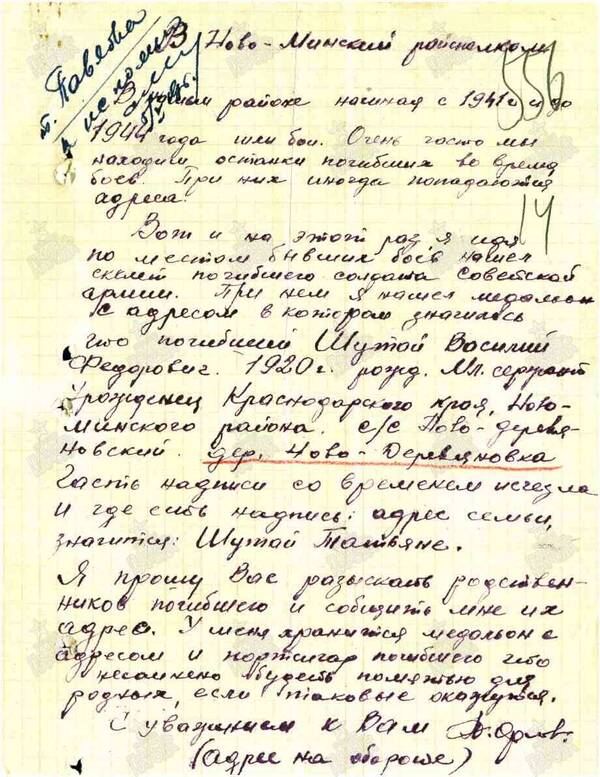 т. Павлова
В Ново-Минский райисполком
556
В нашем районе начиная с 1941 г и до
1944 года шли бои. Очень часто мы
находили останки погибших во время
боёв. При них иногда попадаются
адреса.
14
Вот и на этот раз я идя
по местом бывших боёв нашел
скелет погибшего солдата Советской
армии. При нем я нашел медальон
с адресом в котором значилось
что погибший Шутой Василий
Федорович. 1920 г. рожд. Мл. сержант
Урожденец Краснодарского края, Ново-
минского района. с/с Ново-деревя-
новский. дер. Ново-Деревяновка
Часть надписи со временем исчезла
и где есть надпись: адрес семьи,
значится: Шутой Татьяне.
Я прошу Вас разыскать родствен-
ников погибшего и собщить мне их
адрес. У меня хранится медольон с
адресом и портсигар погибшего что
несомнено будеть помятью для
родных, если таковые окажутся.
С уважением к Вам Орлов.
(адрес на обороте)